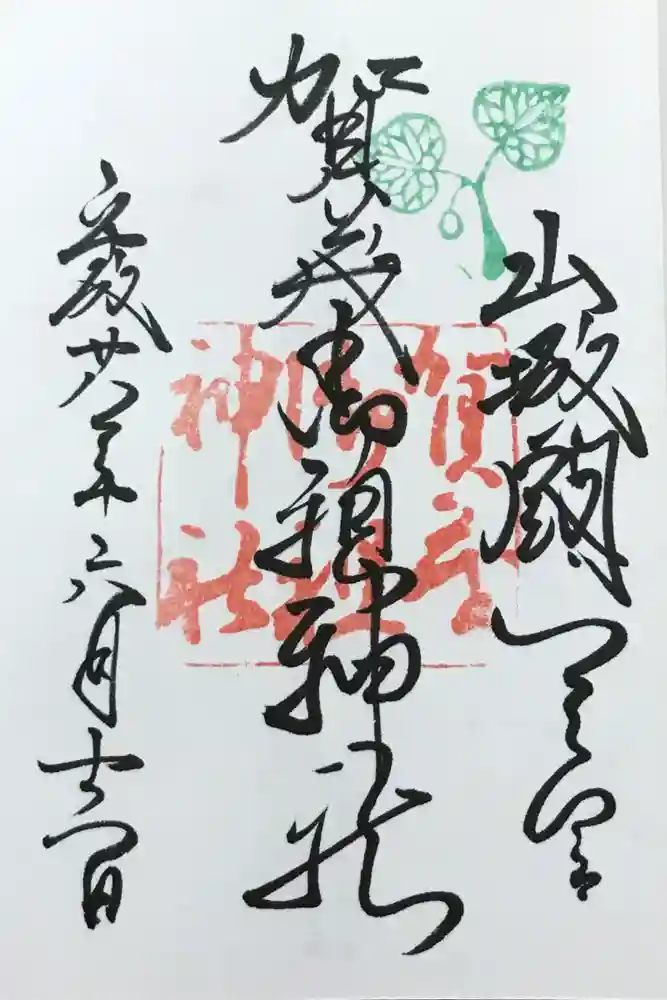 山城國一之宮
賀茂御祖神社
平成廿八年六月十日
賀茂
御祖
神社